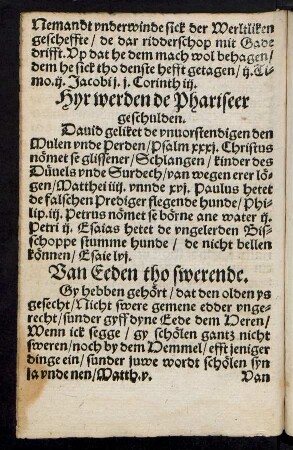 Nemandt vnderwinde sick der Werltliken
gescheffte / de dar ridderschop mit Gade
drifft. Vp dat he dem mach wol behagen /
dem he sick tho denste hefft getagen / ij. Ti-
mo. ij. Jacobi j. j. Corinth iij.
Hyr werden de Phariseer
geschulden.
Dauid geliket de vnuorstendigen den
Mulen vnde Perden / Psalm xxxj. Christus
nömet se glissener / Schlangen / kinder des
Düuels vnde Surdech / van wegen erer lö-
gen / Matthei iiij. vnnde xvj. Paulus hetet
de falschen Prediger flegende hunde / Phi-
lip. iij. Petrus nömet se börne ane water ij.
Petri ij. Esaias hetet de vngelerden Bis-
schoppe stumme hunde / de nicht bellen
können / Esaie lvj.
Van Eeden tho swerende.
Gy hebben gehört / dat den olden ys
gesecht / Nicht swere gemene edder vnge-
recht / sunder gyff dyne Eede dem Heren /
Wenn ick segge / gy schölen gantz nicht
sweren / noch by dem Hemmel / efft jeniger
dinge ein / sunder juwe wordt schölen syn
ja vnde nen / Matth. v.
Van